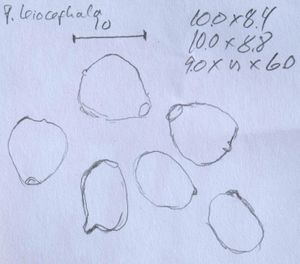 P. leiocephala
10
10.0 x 8.4
10.0 x 8.8
9.0 x n x 6.0